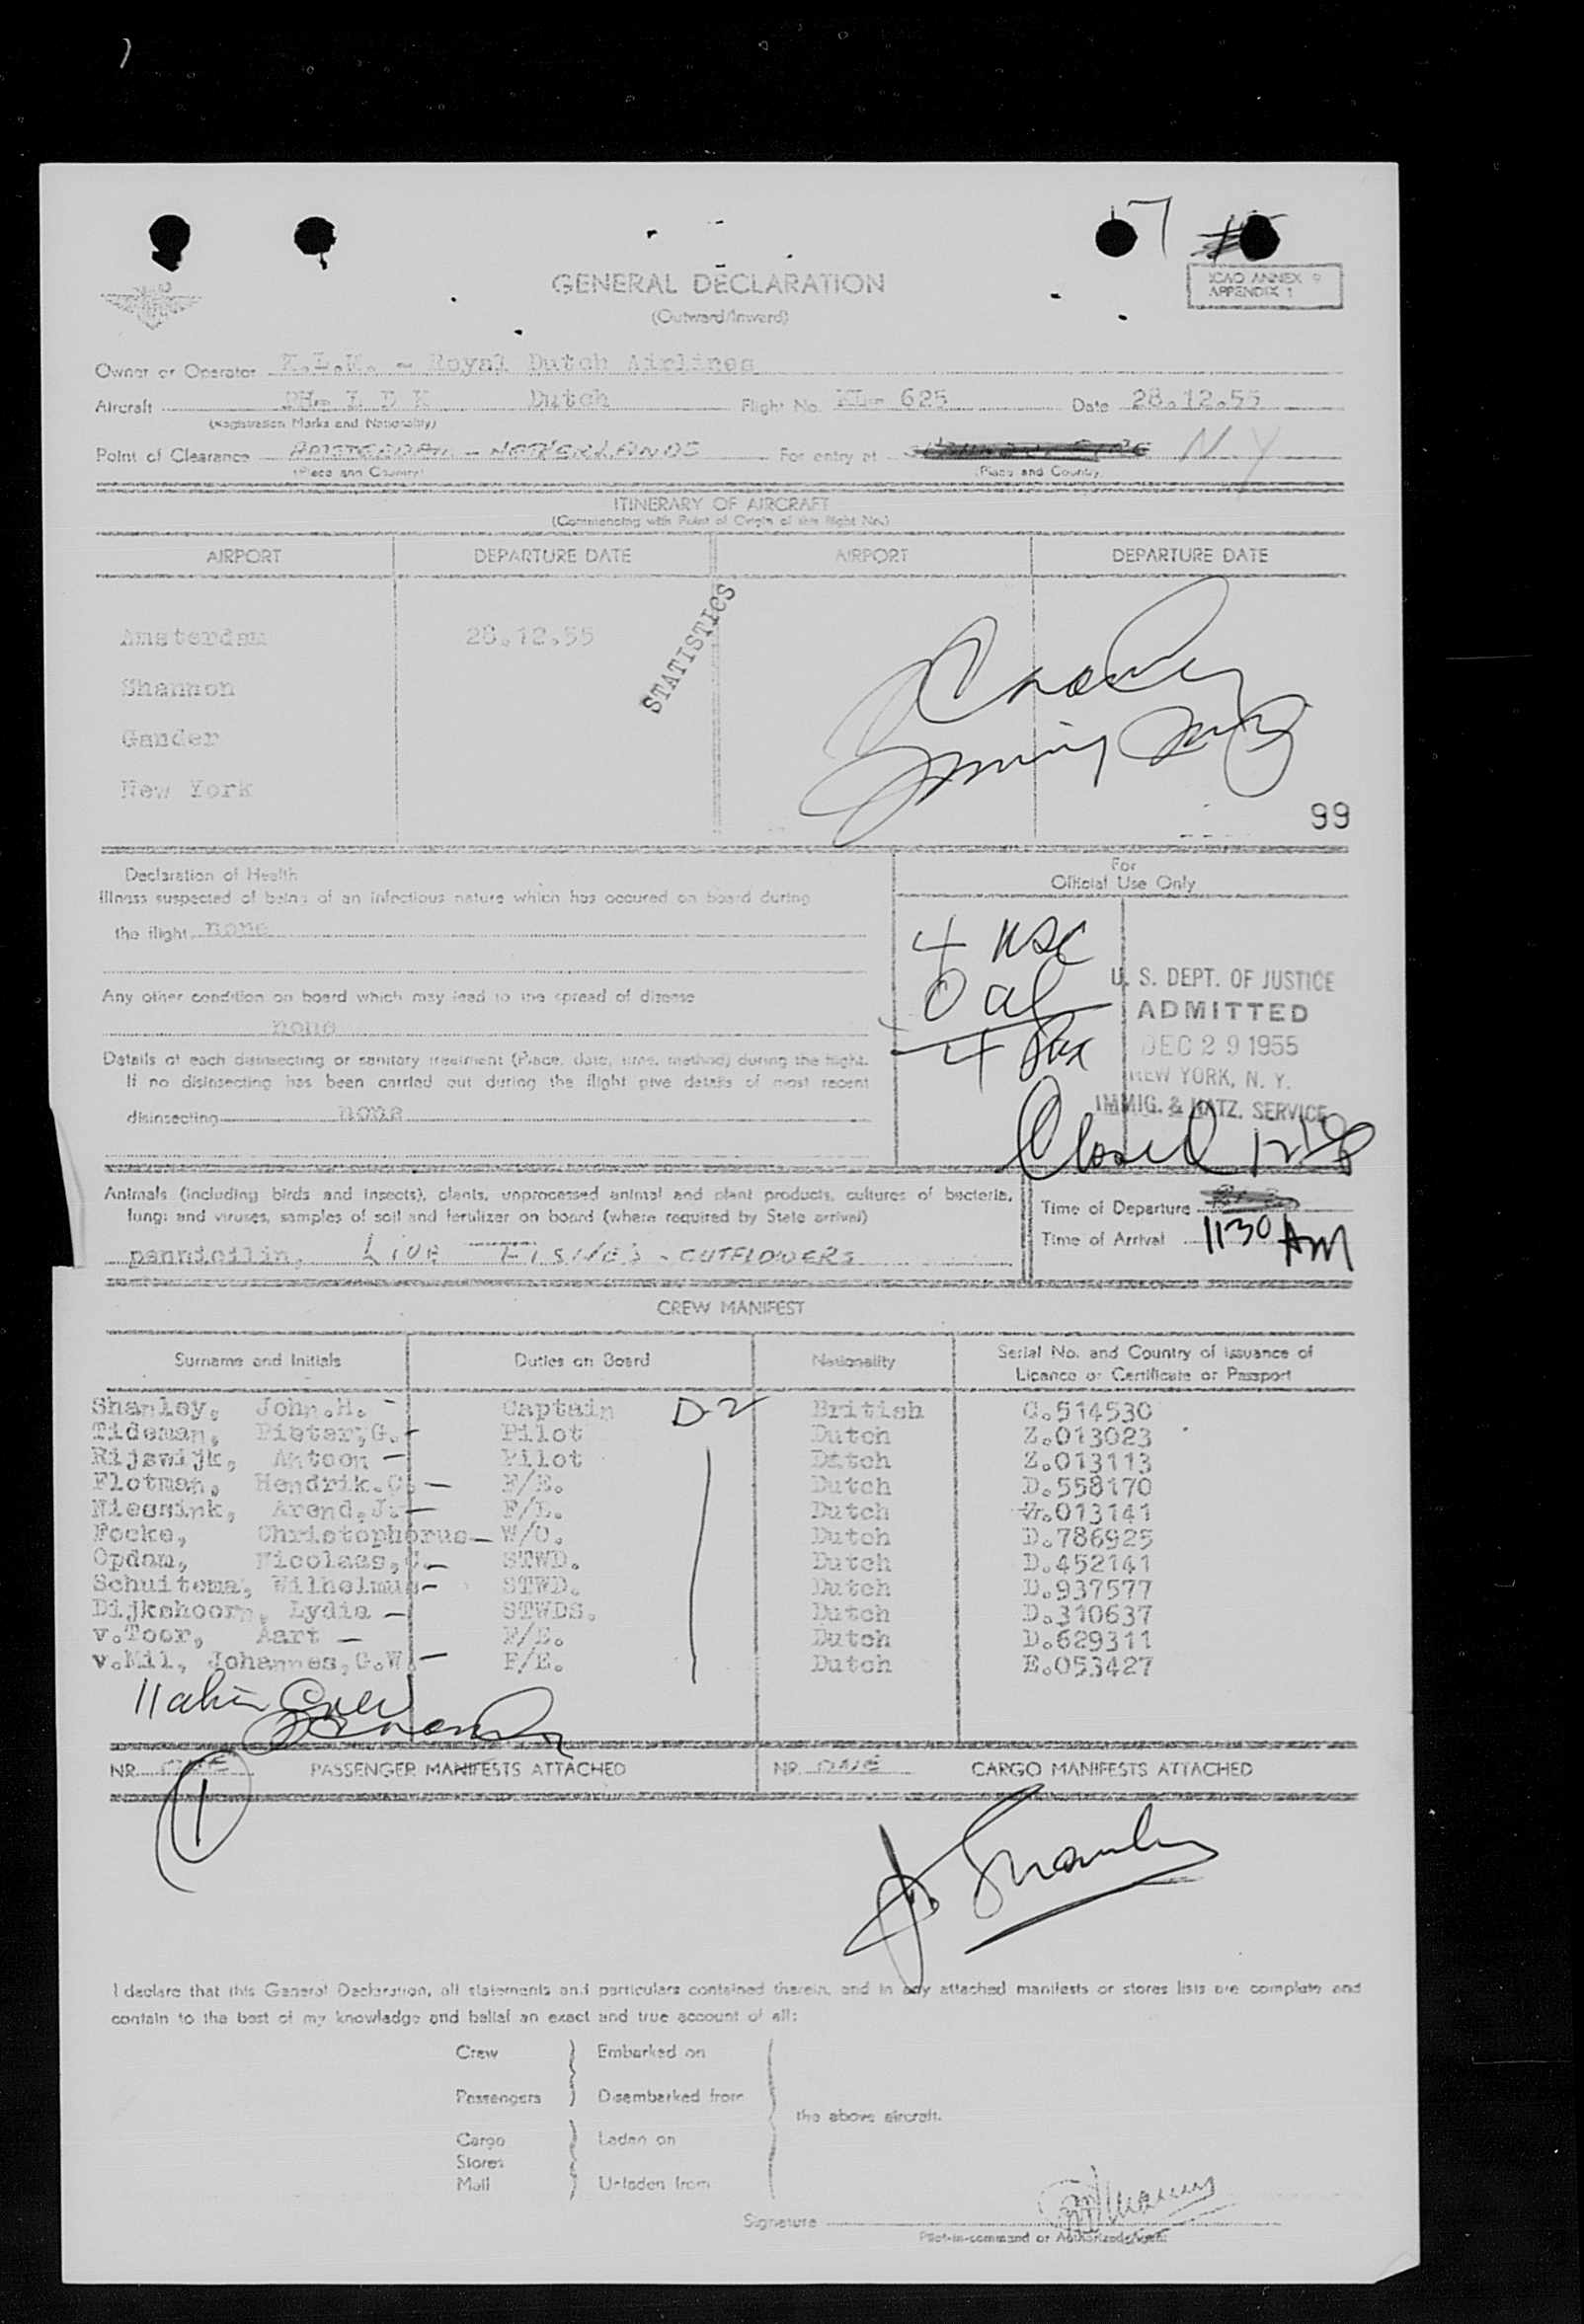 7
GENERAL DECLARATION
ICAO ANNEX 9
APPENDIX 1
(Outward/Inward)
Owner or Operator K.L.M. - Royal Dutch Airlines
Aircraft PH- Dutch Flight No. KL- 625 Date 28.12.55
(Registration Marks and Nationality)
Point of Clearance AMSTERDAM - NETHERLANDS For entry at N.Y
(Place and Country) (Place and Country)
ITINERARY OF AIRCRAFT
(Commencing with Point of Origin of this flight No.)
AIRPORT DEPARTURE DATE AIRPORT DEPARTURE DATE
Amsterdam 28.12.55
STATISTICS
Shannon
Gander
New York
99
Declaration of Health
For
Official Use Only
Illness suspected of being of an infectious nature which has occured on board during
the flight none
4 USC
0 al
4 Pax
U. S. DEPT. OF JUSTICE
ADMITTED
DEC 29 1955
NEW YORK, N. Y.
IMMIG. & NATZ. SERVICE
Any other condition on board which may lead to the spread of disease
none
Details of each disinsecting or sanitary treatment (Place, date, time, method) during the flight.
If no disinsecting has been carried out during the flight give details of most recent
disinsecting none
Closed
Animals (including birds and insects), plants, unprocessed animal and plant products, cultures of bacteria,
fungi and viruses, samples of soil and fertilizer on board (where required by State arrival)
pennicilin, LIVE FISHES - CUTFLOWERS
Time of Departure
Time of Arrival 11:30 AM
CREW MANIFEST
Surname and Initials Duties on Board Nationality Serial No. and Country of issuance of
Licence or Certificate or Passport
Shanley, John.H. - Captain D-2 British C.514530
Tideman, Pieter,G. - Pilot Dutch Z.013023
Rijswijk, Antoon - Pilot Dutch Z.013113
Flotman, Hendrik.C. - F/E. Dutch D.558170
Niessink, Arend.J. - F/L. Dutch 013141
Focke, Christophorus - W/O. Dutch D.786925
Opdam, Nicolaas,C. - STWD. Dutch D.452141
Schuitema, Wilhelmus - STWD. Dutch D.937577
Dijkshoorn, Lydia - STWDS. Dutch D.310637
v.Toor, Aart - F/E. Dutch D.629311
v.Mil, Johannes,G.W. - F/E. Dutch E.053427
11 alien Crew
NR. ONE PASSENGER MANIFESTS ATTACHED NR. ONE CARGO MANIFESTS ATTACHED
1
J. Shanley
I declare that this General Declaration, all statements and particulars contained therein, and in any attached manifests or stores lists are complete and
contain to the best of my knowledge and belief an exact and true account of all:
Crew Embarked on
Passengers Disembarked from
the above aircraft.
Cargo Laden on
Stores
Mail Unladen from
Signature
Pilot-in-command or Authorized Agent